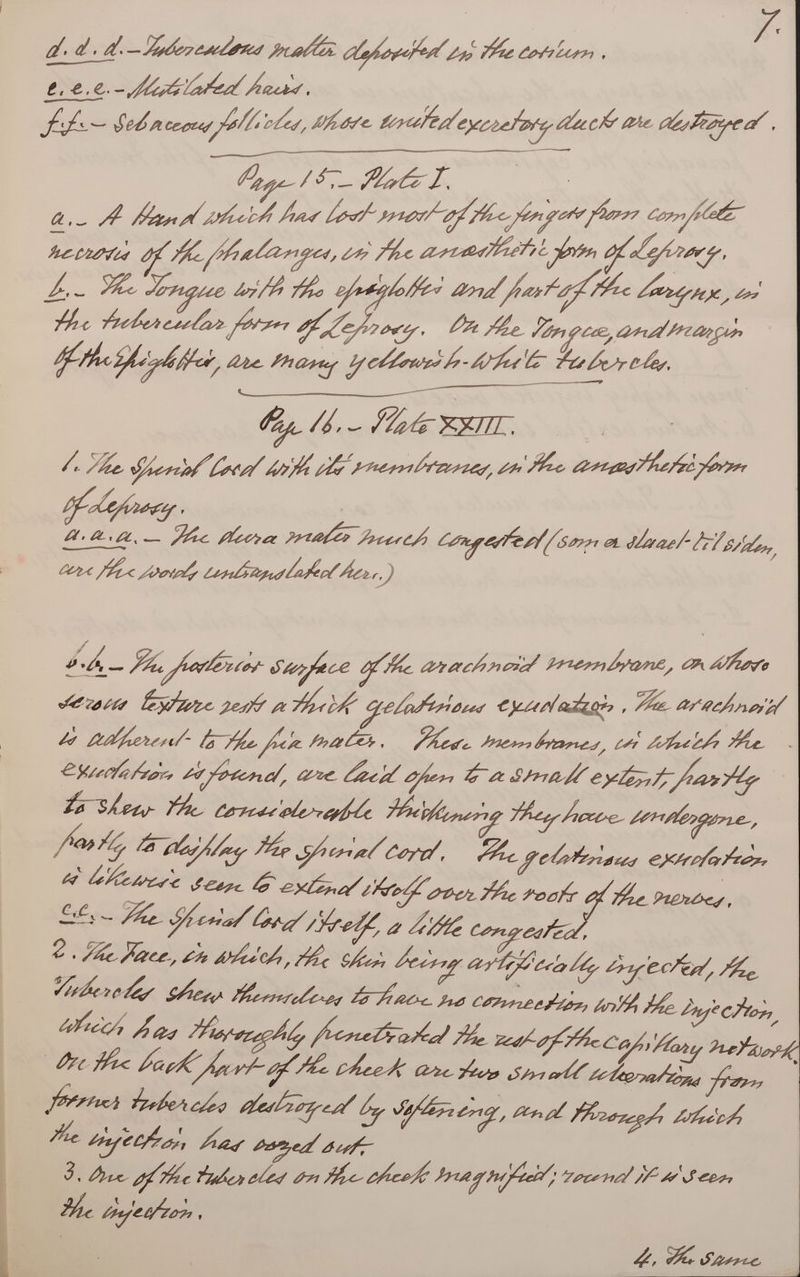 7.
d. d. d. - Tuberculous matter deposited in the corium.
e. e. e. - Mutilated hairs.
f. f. - Sebaceous follicles, whose united excretory ducts are destroyed.
Page 15. - Plate I.
a. - A Hand which has lost most of the fingers from complete
necrosis of the phalanges, in the anæsthetic form of Leprosy.
b. - The Tongue with the epiglottis and part of the larynx, in
the tubercular form of Leprosy. On the Tongue, and margin
of the Epiglottis, are many yellowish-white tubercles.
Page 16. - Plate XXIII.
1. The Spinal Cord with its membranes, in the anæsthetic form
of Leprosy.
a. a. a. - The dura mater much congested (som er slaaet til siden,
are the words untranslated here.)
b. b. - The posterior surface of the arachnoid membrane, on whose
serous texture rests a thick gelatinous exudation. The arachnoid
is adherent to the pia mater. These membranes, in which the
exudation is found, are laid open to a small extent, partly
to shew the considerable thickening they have undergone,
partly to display the spinal cord. The gelatinous exudation
is likewise seen to extend itself over the roots of the nerves.
c. c. - The Spinal Cord itself, a little congested.
2. The Face, in which, the skin being artificially injected, the
Tubercles shew themselves to have no connection with the injection,
which has thoroughly penetrated the rest of the capillary network.
On the back part of the cheek are two small ulcerations from
former tubercles destroyed by softening, and through which
the injection has oozed out.
3. One of the tubercles on the cheek magnified; round it is seen
the injection.
4. The same